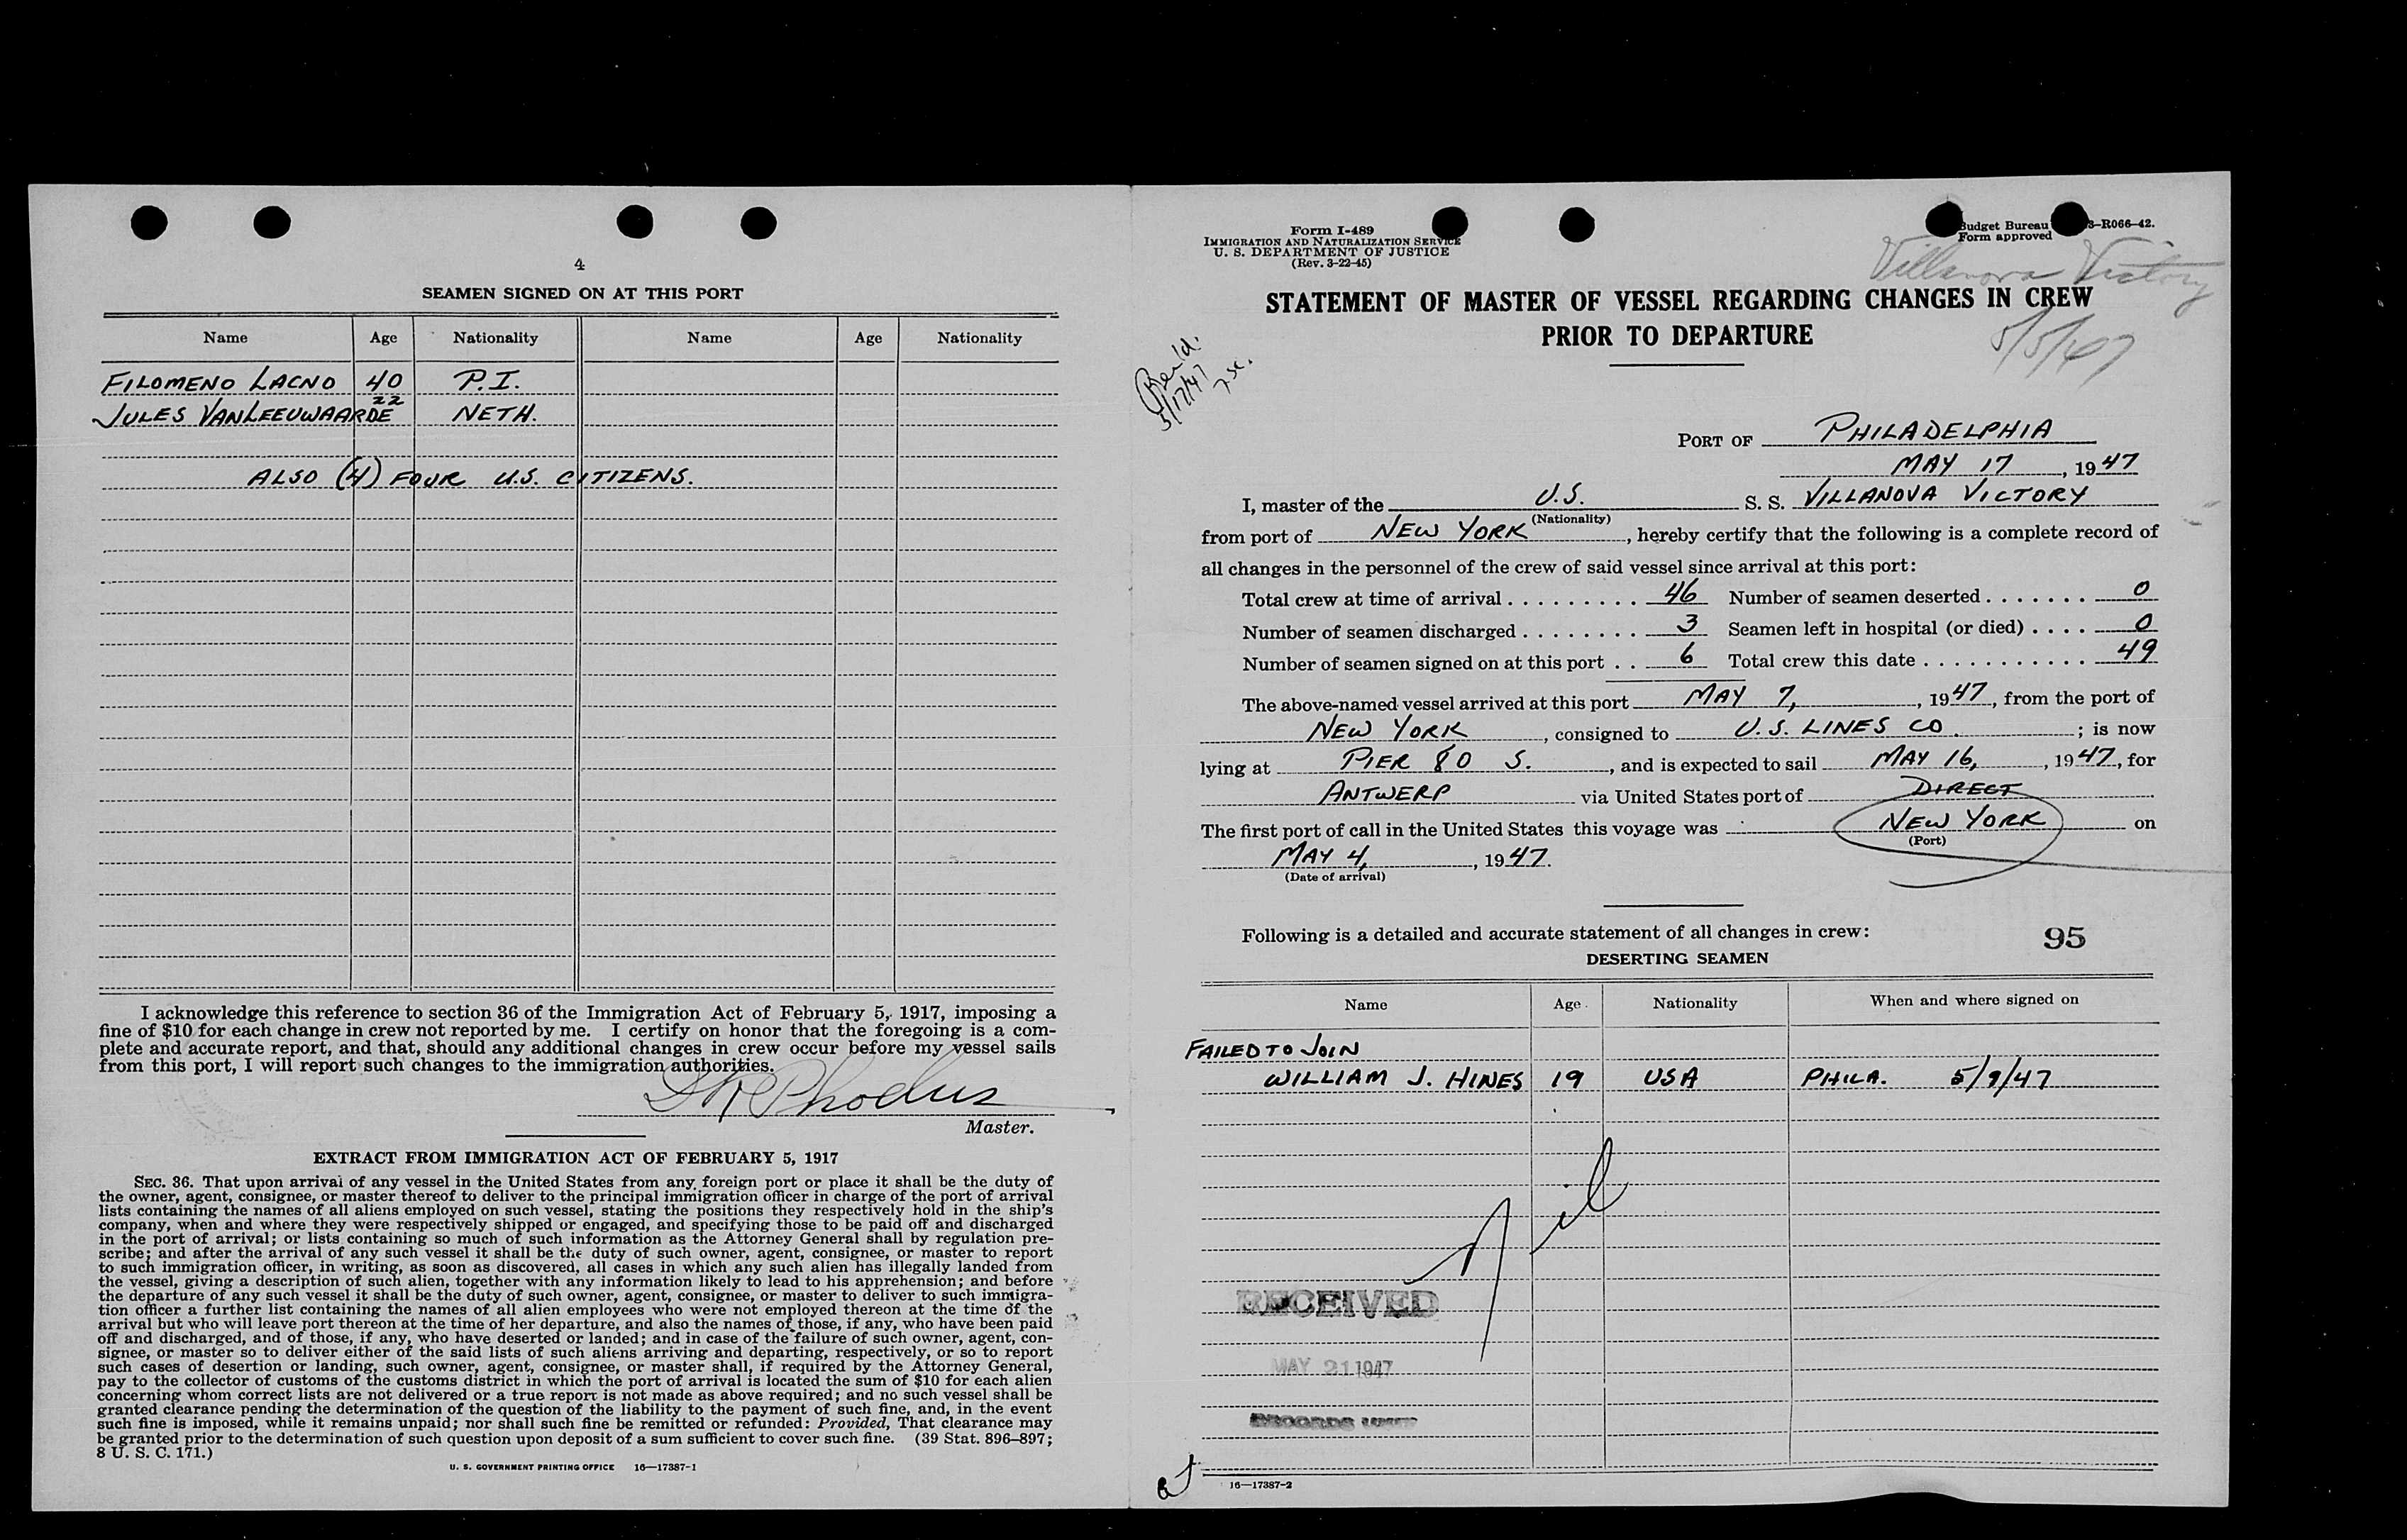 4
SEAMEN SIGNED ON AT THIS PORT
Name Age Nationality Name Age Nationality
FILOMENO LACNO 40 P.I.
JULES VANLEEUWAARDE 22 NETH.
ALSO (4) FOUR U.S. CITIZENS.
I acknowledge this reference to section 36 of the Immigration Act of February 5, 1917, imposing a
fine of $10 for each change in crew not reported by me. I certify on honor that the foregoing is a com-
plete and accurate report, and that, should any additional changes in crew occur before my vessel sails
from this port, I will report such changes to the immigration authorities.
Master.
EXTRACT FROM IMMIGRATION ACT OF FEBRUARY 5, 1917
SEC. 36. That upon arrival of any vessel in the United States from any foreign port or place it shall be the duty of
the owner, agent, consignee, or master thereof to deliver to the principal immigration officer in charge of the port of arrival
lists containing the names of all aliens employed on such vessel, stating the positions they respectively hold in the ship's
company, when and where they were respectively shipped or engaged, and specifying those to be paid off and discharged
in the port of arrival; or lists containing so much of such information as the Attorney General shall by regulation pre-
scribe; and after the arrival of any such vessel it shall be the duty of such owner, agent, consignee, or master to report
to such immigration officer, in writing, as soon as discovered, all cases in which any such alien has illegally landed from
the vessel, giving a description of such alien, together with any information likely to lead to his apprehension; and before
the departure of any such vessel it shall be the duty of such owner, agent, consignee, or master to deliver to such immigra-
tion officer a further list containing the names of all alien employees who were not employed thereon at the time of the
arrival but who will leave port thereon at the time of her departure, and also the names of those, if any, who have been paid
off and discharged, and of those, if any, who have deserted or landed; and in case of the failure of such owner, agent, con-
signee, or master so to deliver either of the said lists of such aliens arriving and departing, respectively, or so to report
such cases of desertion or landing, such owner, agent, consignee, or master shall, if required by the Attorney General,
pay to the collector of customs of the customs district in which the port of arrival is located the sum of $10 for each alien
concerning whom correct lists are not delivered or a true report is not made as above required; and no such vessel shall be
granted clearance pending the determination of the question of the liability to the payment of such fine, and, in the event
such fine is imposed, while it remains unpaid; nor shall such fine be remitted or refunded: Provided, That clearance may
be granted prior to the determination of such question upon deposit of a sum sufficient to cover such fine. (39 Stat. 896–897;
8 U. S. C. 171.)
U. S. GOVERNMENT PRINTING OFFICE 16—17387-1
Form I-489
IMMIGRATION AND NATURALIZATION SERVICE
U. S. DEPARTMENT OF JUSTICE
(Rev. 3-22-45)
Budget Bureau 3–R066–42.
Form approved
Villanova Victory
STATEMENT OF MASTER OF VESSEL REGARDING CHANGES IN CREW
PRIOR TO DEPARTURE
5/5/47
5/17/47
PORT OF PHILADELPHIA
MAY 17, 1947
I, master of the U.S. S. S. VILLANOVA VICTORY
(Nationality)
from port of NEW YORK, hereby certify that the following is a complete record of
all changes in the personnel of the crew of said vessel since arrival at this port:
Total crew at time of arrival . . . . . . . . . 46 Number of seamen deserted . . . . . . . 0
Number of seamen discharged . . . . . . . . 3 Seamen left in hospital (or died) . . . . 0
Number of seamen signed on at this port . . 6 Total crew this date . . . . . . . . . . . 49
The above-named vessel arrived at this port MAY 7, 1947, from the port of
NEW YORK, consigned to U.S. LINES CO.; is now
lying at PIER 80 S., and is expected to sail MAY 16, 1947, for
ANTWERP via United States port of DIRECT
The first port of call in the United States this voyage was NEW YORK on
(Port)
MAY 4, 1947.
(Date of arrival)
Following is a detailed and accurate statement of all changes in crew:
95
DESERTING SEAMEN
Name Age Nationality When and where signed on
FAILED TO JOIN
WILLIAM J. HINES 19 USA PHILA. 5/9/47
Nil
RECEIVED
MAY 21 1947
RECORDS UNIT
16—17387-2